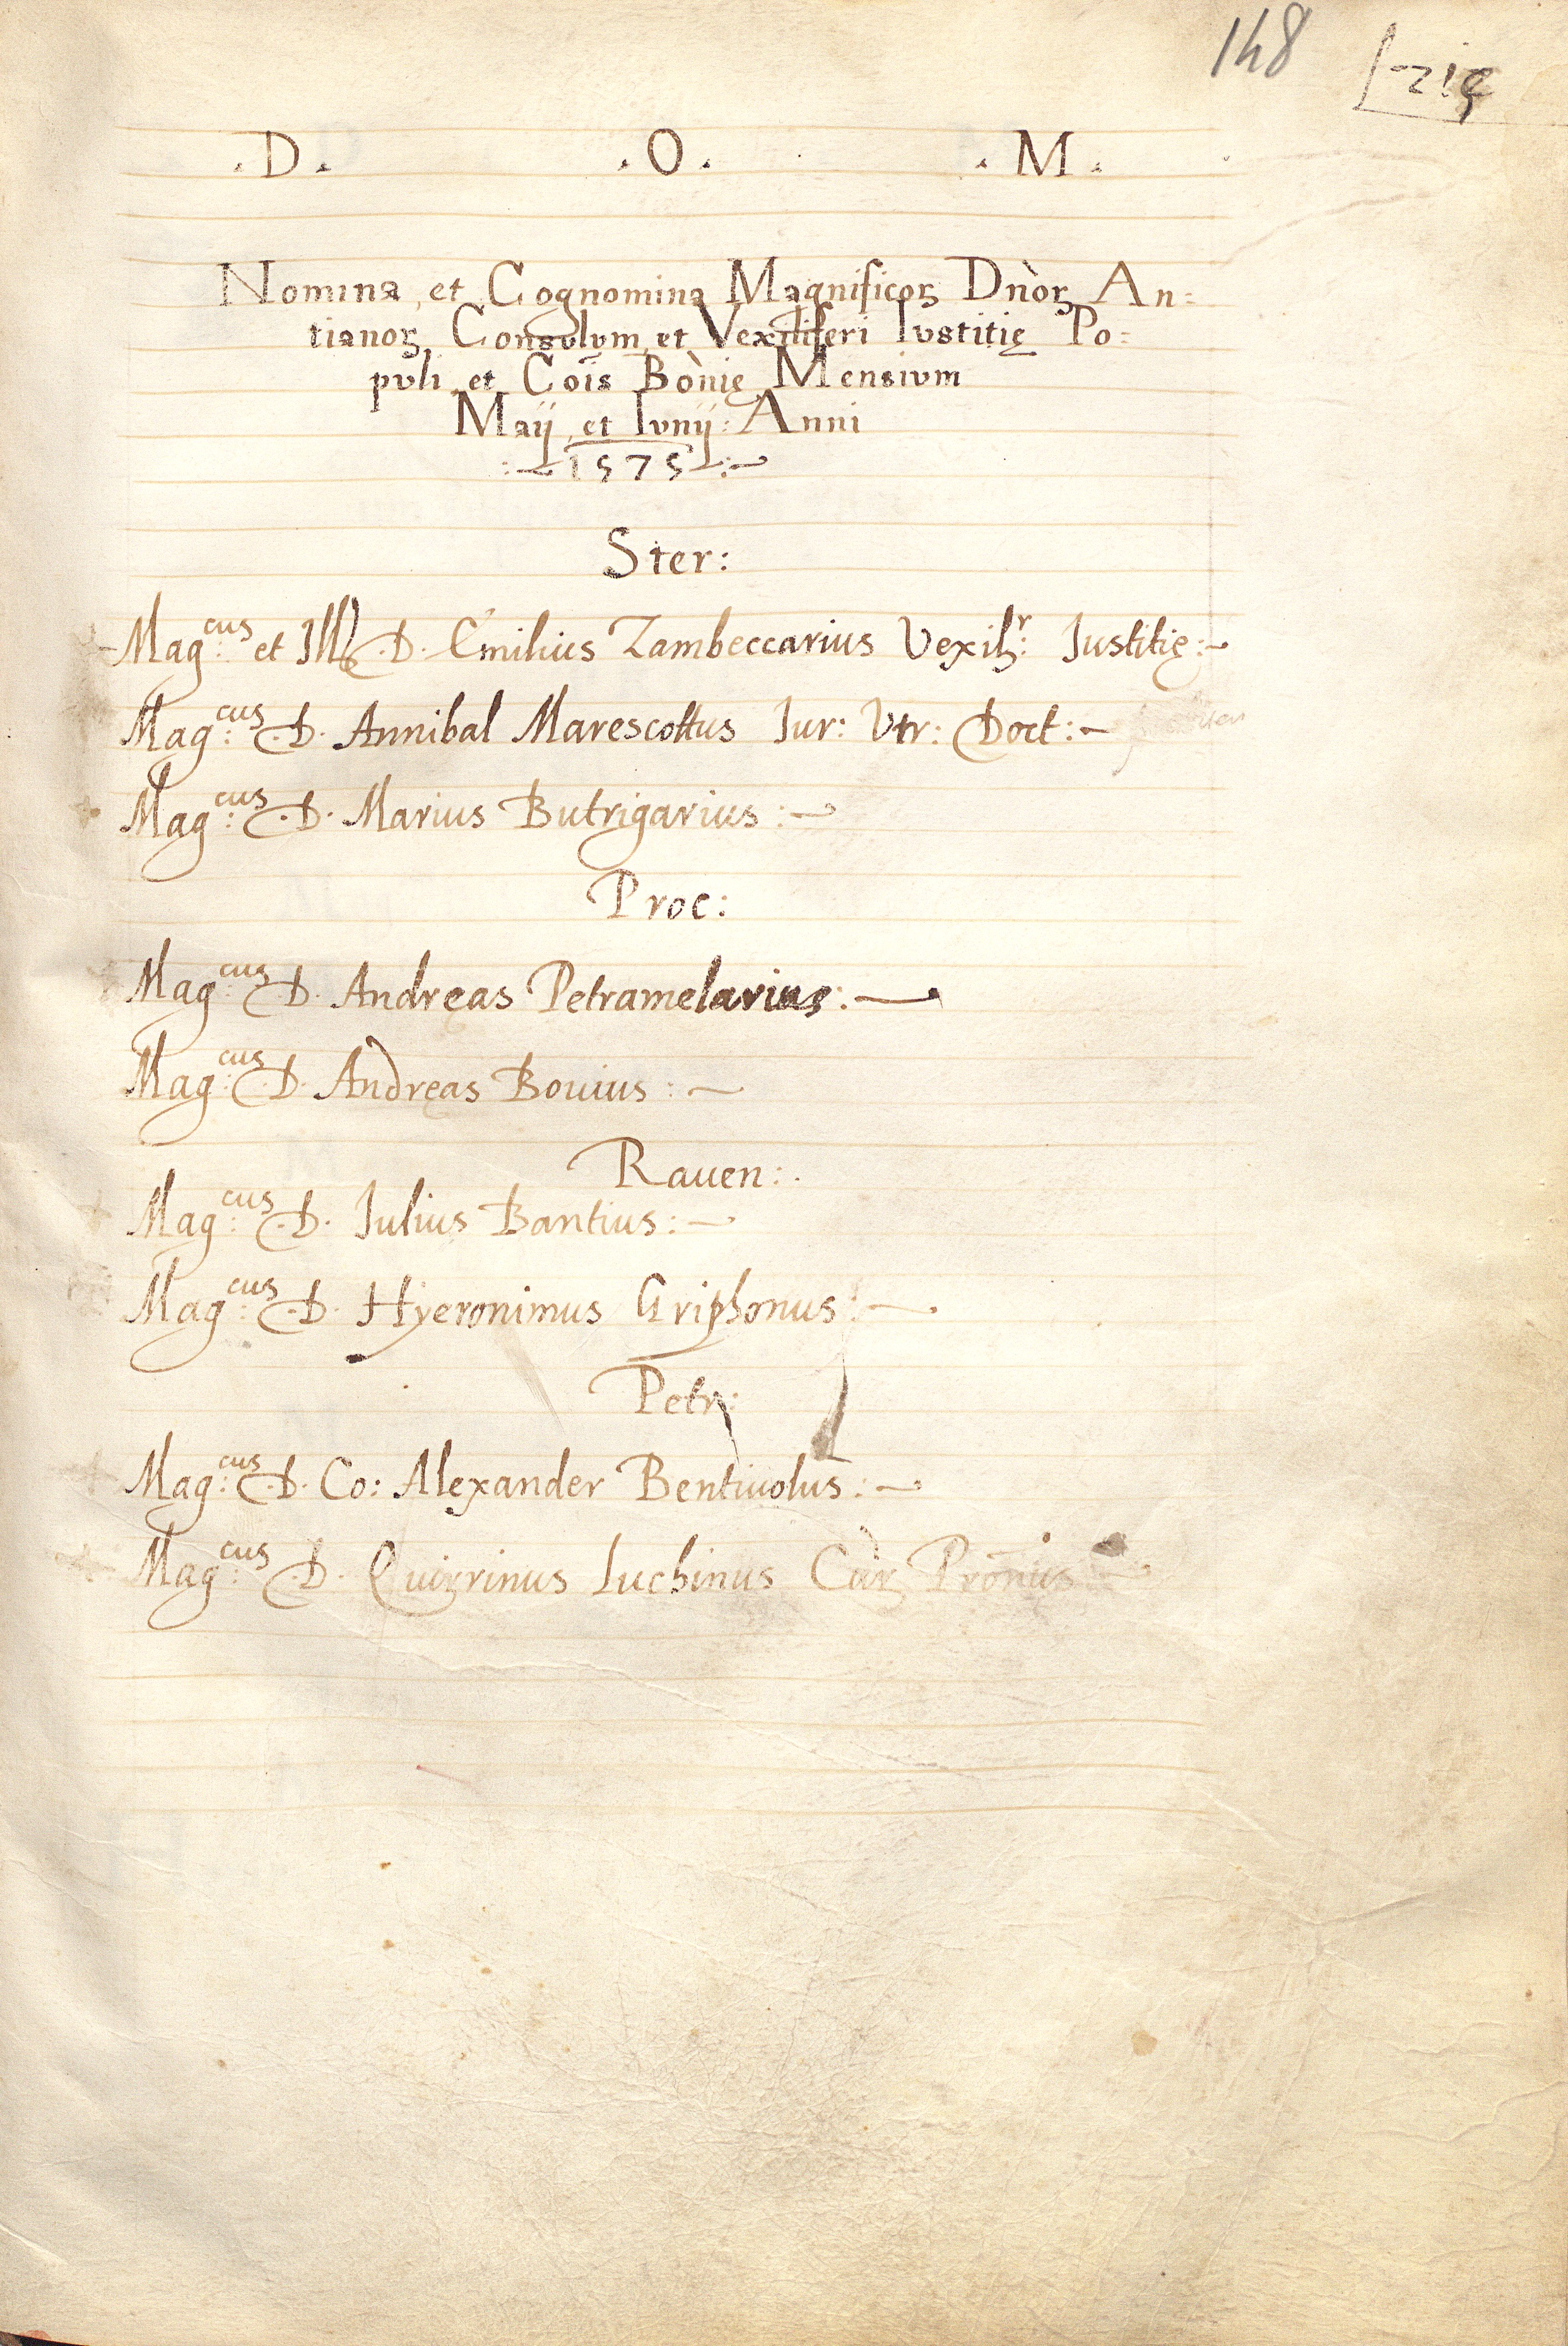 148
. D . . O . . M .
Nomina et Cognomina Magnificoꝝ Dn̄oꝝ An=
tianoꝝ Consulum et Vexiliferi Iustitię Po=
puli et Cōis Bōnię Mensium
Maij et Iunij: Anni
1575
Ster:
Mag:cus et Ill D. Emilius Zambeccarius Vexilr: Iustitię:
Mag:cus D. Annibal Marescottus Iur: Vtr: Doct:
Mag:cus D. Marius Butrigarius:
Proc:
Mag:cus D. Andręas Petramelarius:
Mag:cus D. Andręas Bouius:
Rauen:
Mag:cus D. Iulius Bantius:
Mag:cus D. Hyeronimus Griphonus:
Petr:
Mag:cus D. Co: Alexander Bentiuolus:
Mag:cus D. Quirrinus Luchinus